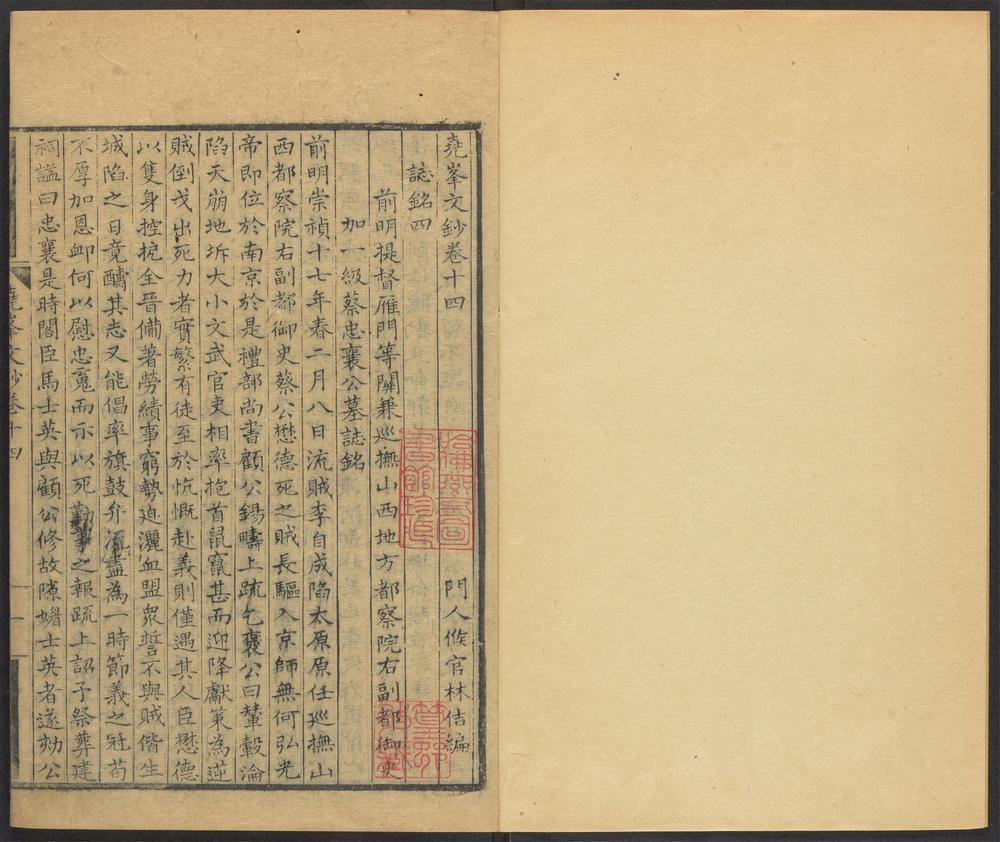 堯峯文鈔卷十四
門人候官林佶編
誌銘四
前明提督雁門等關兼巡撫山西地方都察院右副都御史
加一級蔡忠襄公墓誌銘
前明崇禎十七年春二月八日流賊李自成陷太原原任巡撫山
西都察院右副都御史蔡公懋德死之賊長驅入京師無何弘光
帝即位於南京於是禮部尚書顧公錫疇上疏乞褒公曰輦轂淪
陷天崩地坼大小文武官吏相率抱首鼠竄甚而迎降獻策為逆
賊倒戈出死力者實繁有徒至於忼慨赴義則僅遇其人臣懋德
以隻身控扼全晉備著勞績事窮勢迫灑血盟眾誓不與賊偕生
城陷之日竟酬其志又能倡率旗鼓弁流盡為一時節義之冠苟
不厚加恩卹何以慰忠䰟而示以死勤事之報疏上詔予祭葬建
祠諡曰忠襄是時閣臣馬士英與顧公修故隙媚士英者遂劾公
堯峯文鈔卷十四
一